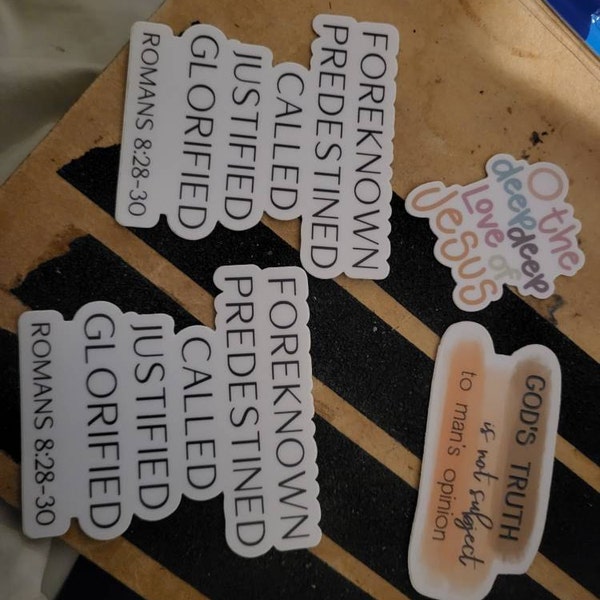 FOREKNOWN
PREDESTINED
CALLED
JUSTIFIED
GLORIFIED
ROMANS 8:28-30
FOREKNOWN
PREDESTINED
CALLED
JUSTIFIED
GLORIFIED
ROMANS 8:28-30
O the
deep deep
Love of
JESUS
GOD'S TRUTH
is not subject
to man's opinion